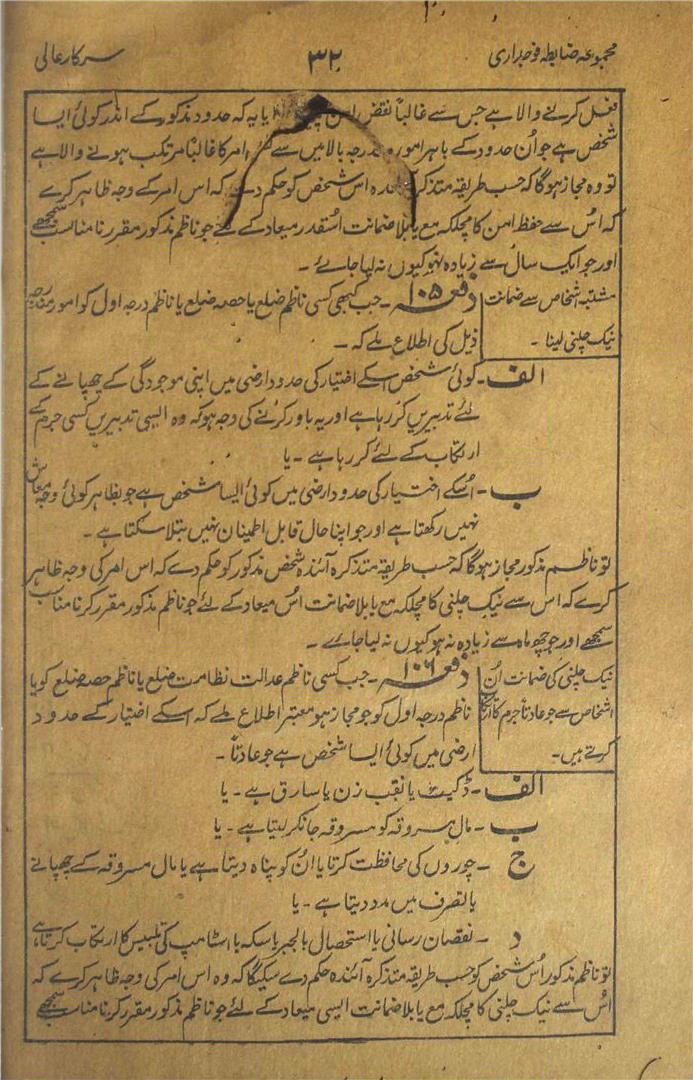 مجموعہ ضابطہ فوجداری ۳۲ سرکار عالی
فعل کرنے والا ہے جس سے غالباً نقض امن یا یہ کہ حدود مذکور کے اندر کوئی ایسا
شخص ہے جو اُن حدود کے باہر امور مندرجہ بالا میں سے امر کا غالباً مرتکب ہونے والا ہے
تو وہ مجاز ہوگا کہ حسب طریقہ متذکرہ آئندہ اس شخص کو حکم دے کہ اس امر کے وجہ ظاہر کرے
کہ اُس سے حفظ امن کا مچلکہ مع یا بلا ضمانت اسقدر میعاد کے لئے جو ناظم مذکور مقرر کرنا مناسب سمجھے
اور جو ایک سال سے زیادہ نہو کیوں نہ لیا جائے ۔
مشتبہ اشخاص سے ضمانت
نیک چلنی لینا ۔
دفعہ ۱۰۵ ۔ جب کبھی کسی ناظم ضلع یا حصہ ضلع یا ناظم درجہ اول کو امور مندرجہ
ذیل کی اطلاع ملے کہ ۔
الف ۔ کوئی شخص اسکے اختیار کی حدود ارضی میں اپنی موجودگی کے چھپانے کے
لئے تدبیریں کر رہا ہے اور یہ باور کرنے کی وجہ ہو کہ وہ ایسی تدبیریں کسی جرم کے
ارتکاب کے لئے کر رہا ہے ۔ یا
ب ۔ اسکے اختیار کی حدود ارضی میں کوئی ایسا شخص ہے جو بظاہر کوئی وجہ معاش
نہیں رکھتا ہے اور جو اپنا حال قابل اطمینان نہیں بتلا سکتا ہے ۔
تو ناظم مذکور مجاز ہوگا کہ حسب طریقہ متذکرہ آئندہ شخص مذکور کو حکم دے کہ اس امر کی وجہ ظاہر
کرے کہ اس سے نیک چلنی کا مچلکہ مع یا بلا ضمانت اُس میعاد کے لئے جو ناظم مذکور مقرر کرنا مناسب
سمجھے اور جو چھ ماہ سے زیادہ نہ ہو کیوں نہ لیا جائے ۔
نیک چلنی کی ضمانت اُن
اشخاص سے جو عادتاً جرم کا ارتکاب
کرتے ہیں ۔
دفعہ ۱۰۶ ۔ جب کسی ناظم عدالت نظامت ضلع یا ناظم حصہ ضلع کو یا
ناظم درجہ اول کو جو مجاز ہو معتبر اطلاع ملے کہ اسکے اختیار کے حدود
ارضی میں کوئی ایسا شخص ہے جو عادتاً ۔
الف ۔ ڈکیت یا نقب زن یا سارق ہے ۔ یا
ب ۔ مال مسروقہ کو مسروقہ جانکر لیتا ہے ۔ یا
ج ۔ چوروں کی محافظت کرتا یا اُن کو پناہ دیتا ہے یا مال مسروقہ کے چھپانے
یا تصرف میں مدد دیتا ہے ۔ یا
د ۔ نقصان رسانی یا استحصال بالجبر یا سکہ یا اسٹامپ کی تلبیس کا ارتکاب کرتا ہے
تو ناظم مذکور اُس شخص کو حسب طریقہ متذکرہ آئندہ حکم دے سکیگا کہ وہ اس امر کی وجہ ظاہر کرے کہ
اُس سے نیک چلنی کا مچلکہ مع یا بلا ضمانت ایسی میعاد کے لئے جو ناظم مذکور مقرر کرنا مناسب سمجھے